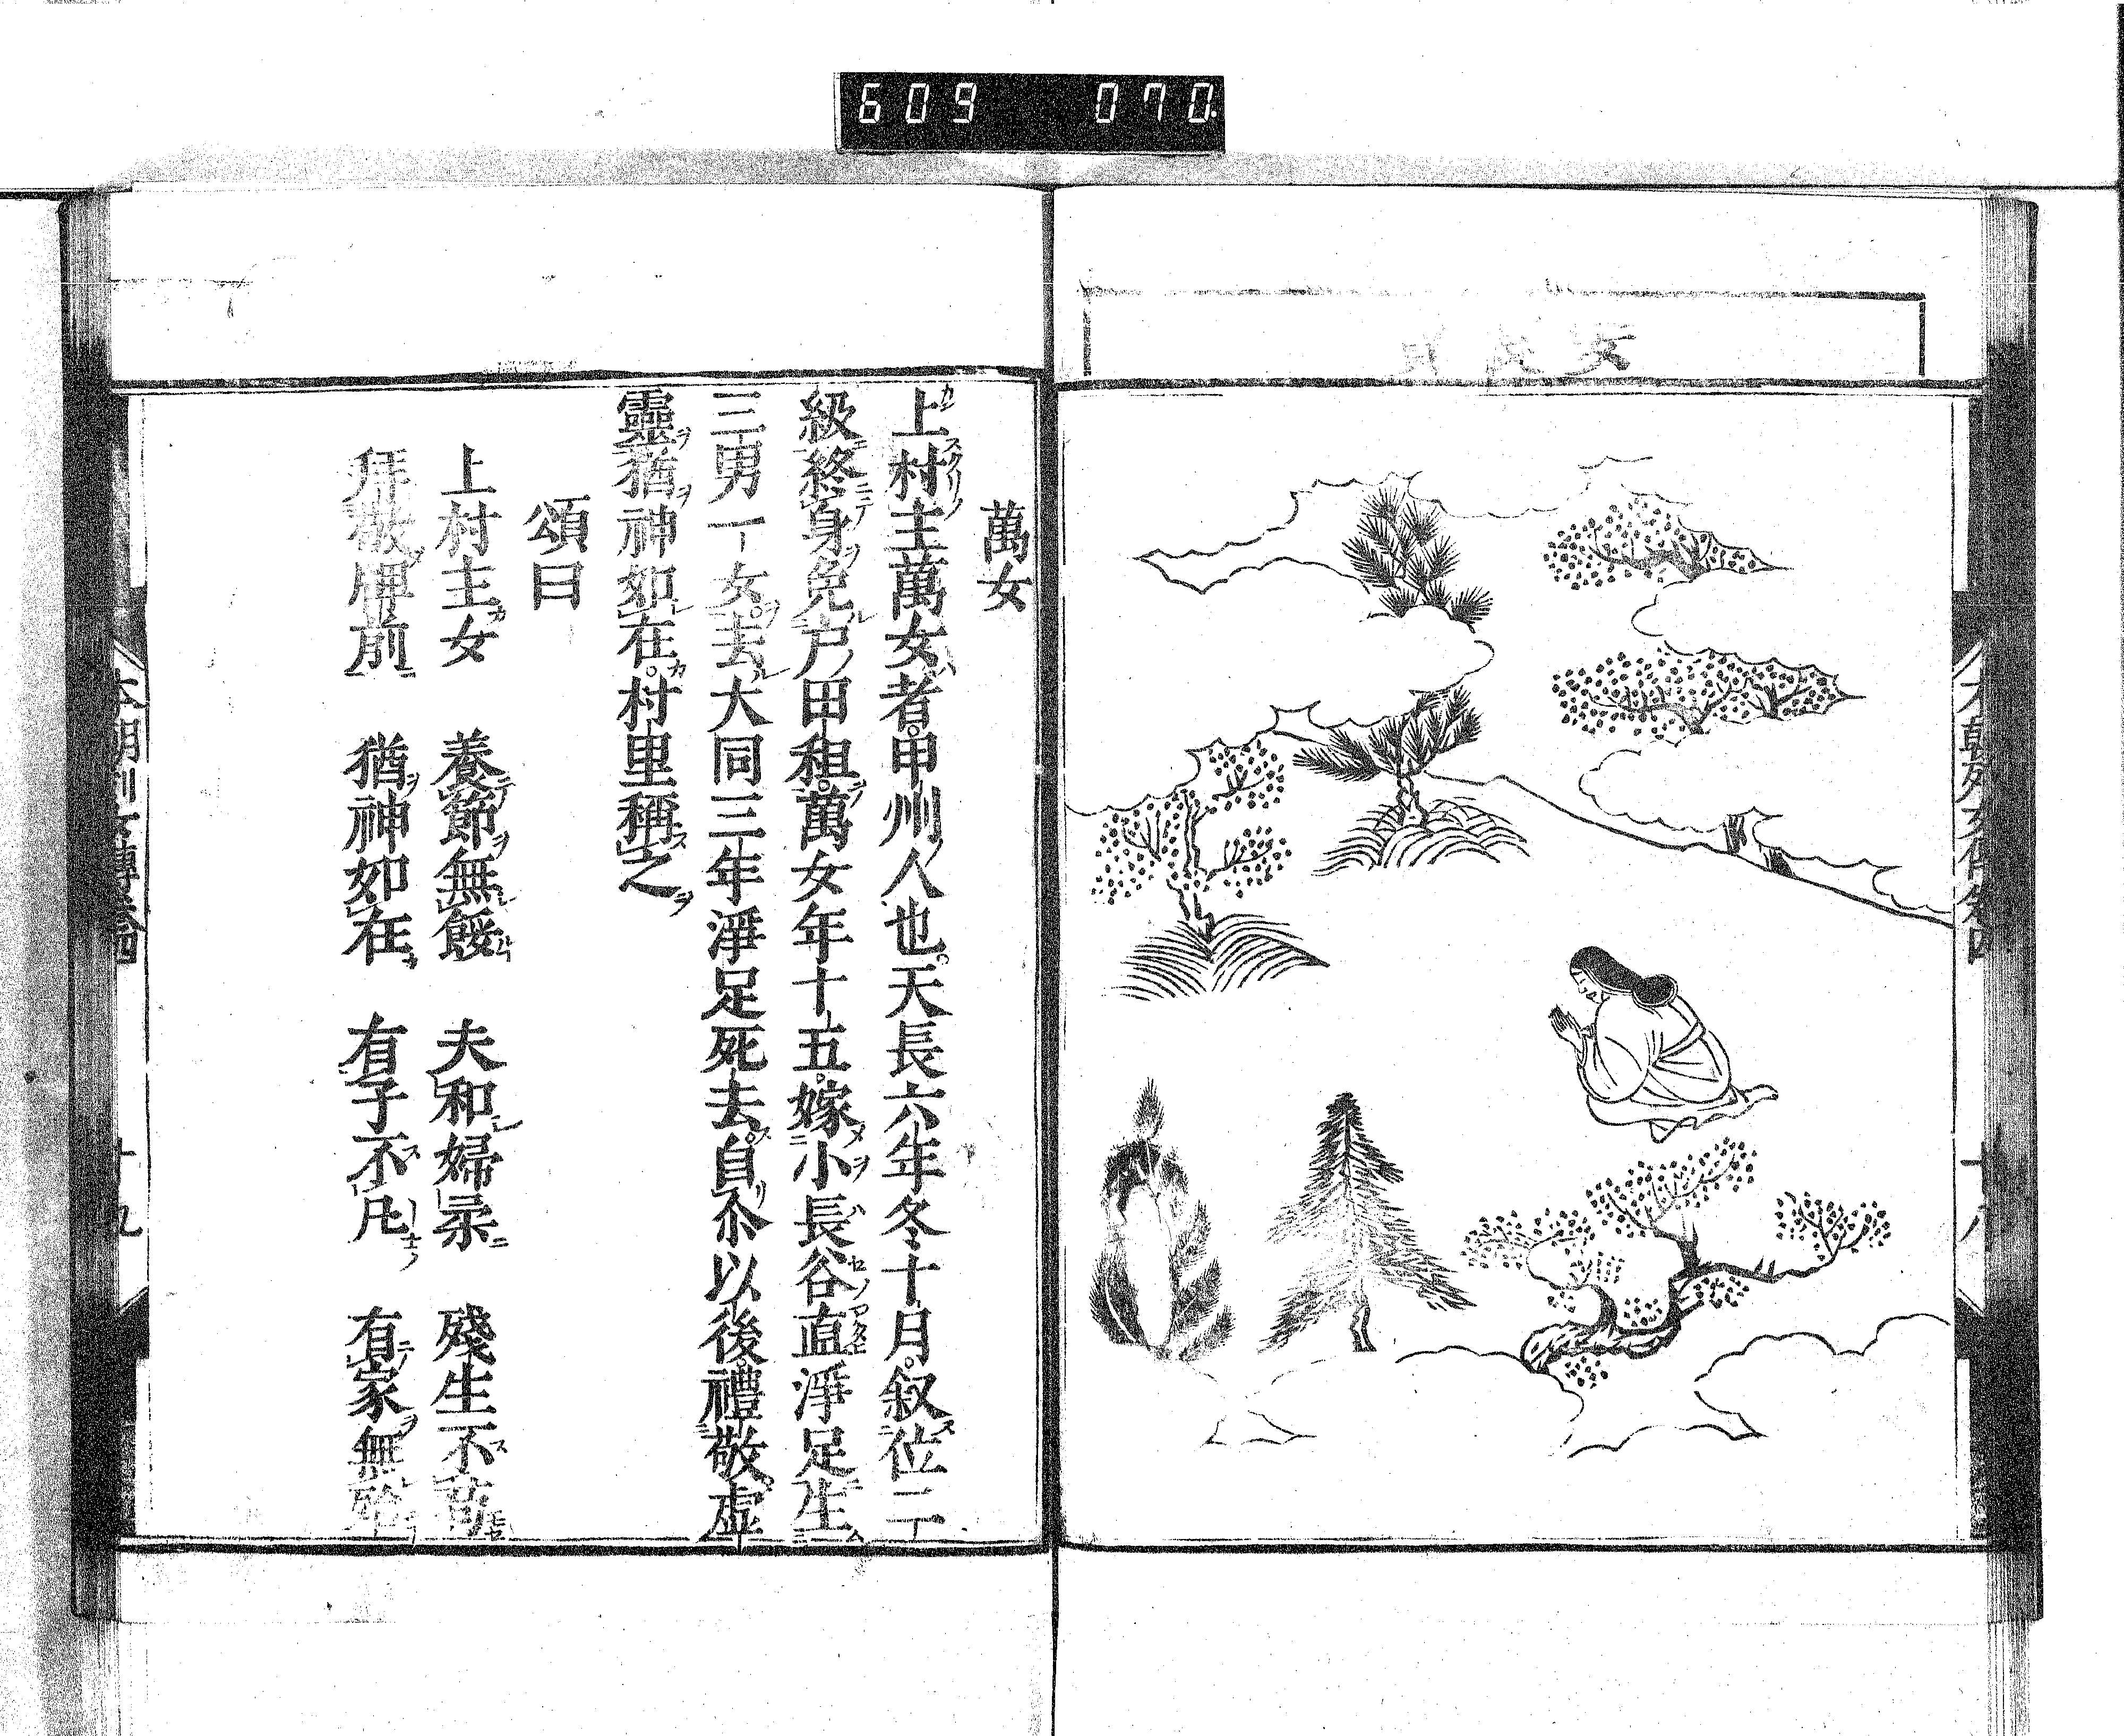 609 070
本朝列女傳卷四
十八
萬女
上村主萬女者。甲州人也。天長六年冬十月。叙位二
級終身免戸田租。萬女年十五。嫁小長谷直浄足生
三男一女。去大同三年浄足死去。自尒以後。禮敬虚
靈猶神如在。村里稱之
頌曰
上村主女　養節無餒　夫和婦柔　殘生不
拜敬牌前　猶神如在　有子不凡　有家無
本朝列女傳卷四
十九